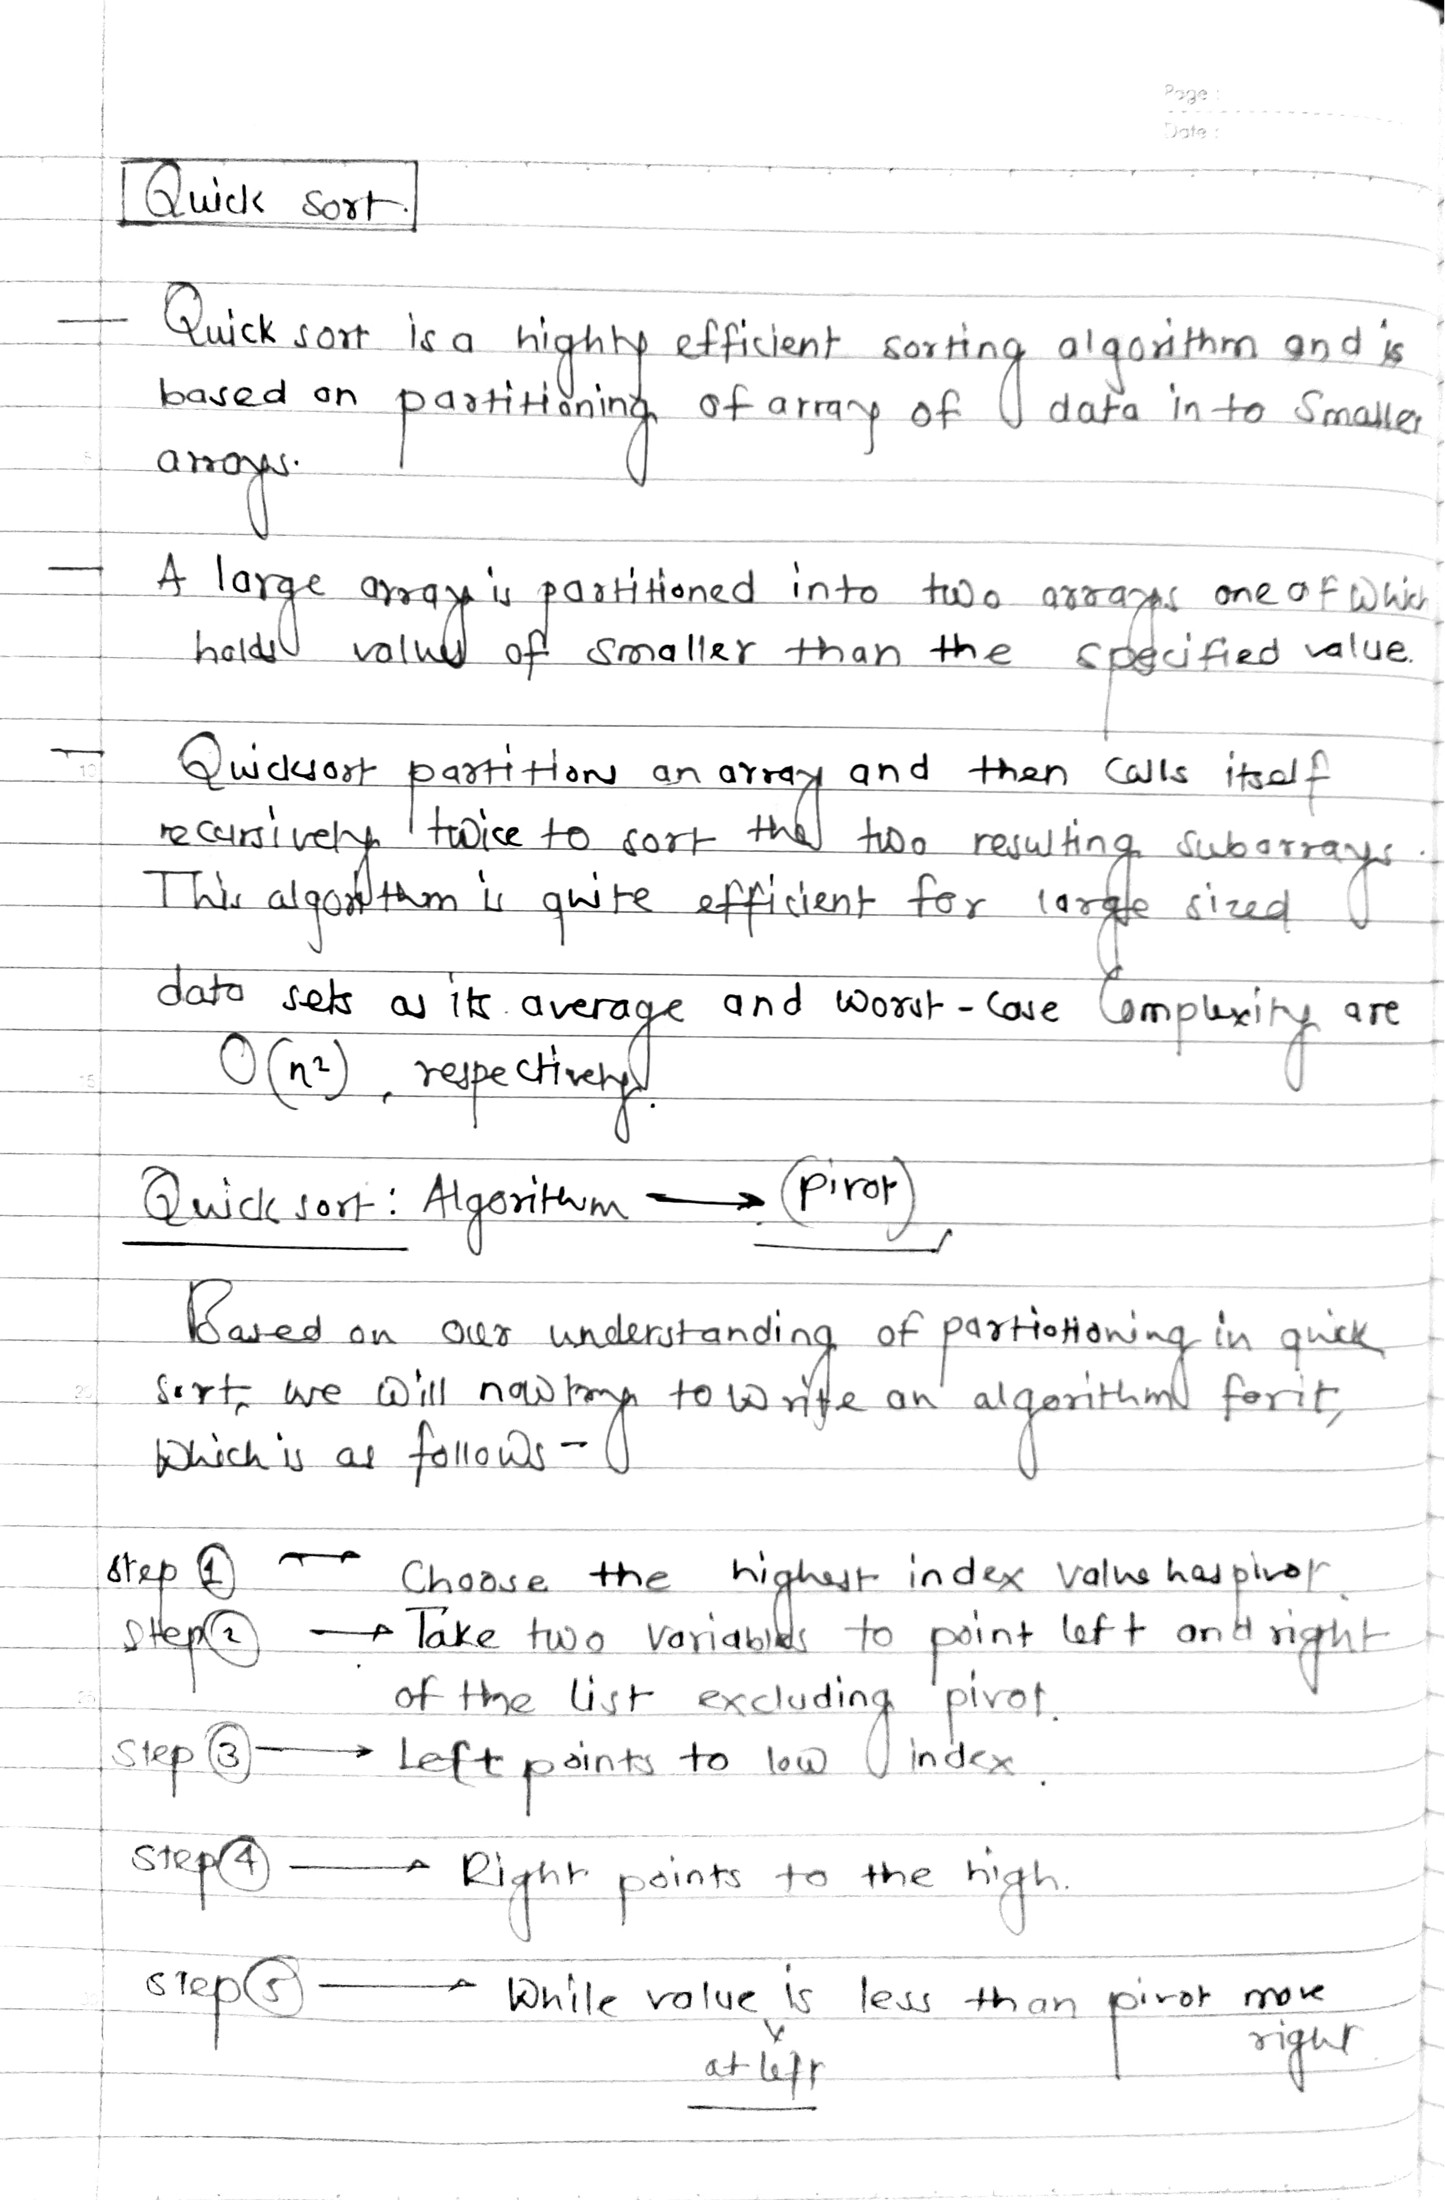 Page :
Date :
Quick sort.
— Quick sort is a highly efficient sorting algorithm and is
based on partitioning of array of data in to smaller
arrays.
— A large array is partitioned into two arrays one of which
holds values of smaller than the specified value.
— Quicksort partitions an array and then calls itself
recursively twice to sort the two resulting subarrays.
This algorithm is quite efficient for large sized
data sets as its average and worst-case Complexity are
O(n²), respectively.
Quick sort: Algorithm → (pivot)
Based on our understanding of partiotioning in quick
sort, we will now try to write an algorithm for it,
which is as follows -
Step 1 → Choose the highest index value has pivot.
Step 2 → Take two variables to point left and right
of the list excluding pivot.
Step 3 → Left points to low index.
Step 4 → Right points to the high.
Step 5 → While value is less than pivot move
right
at left